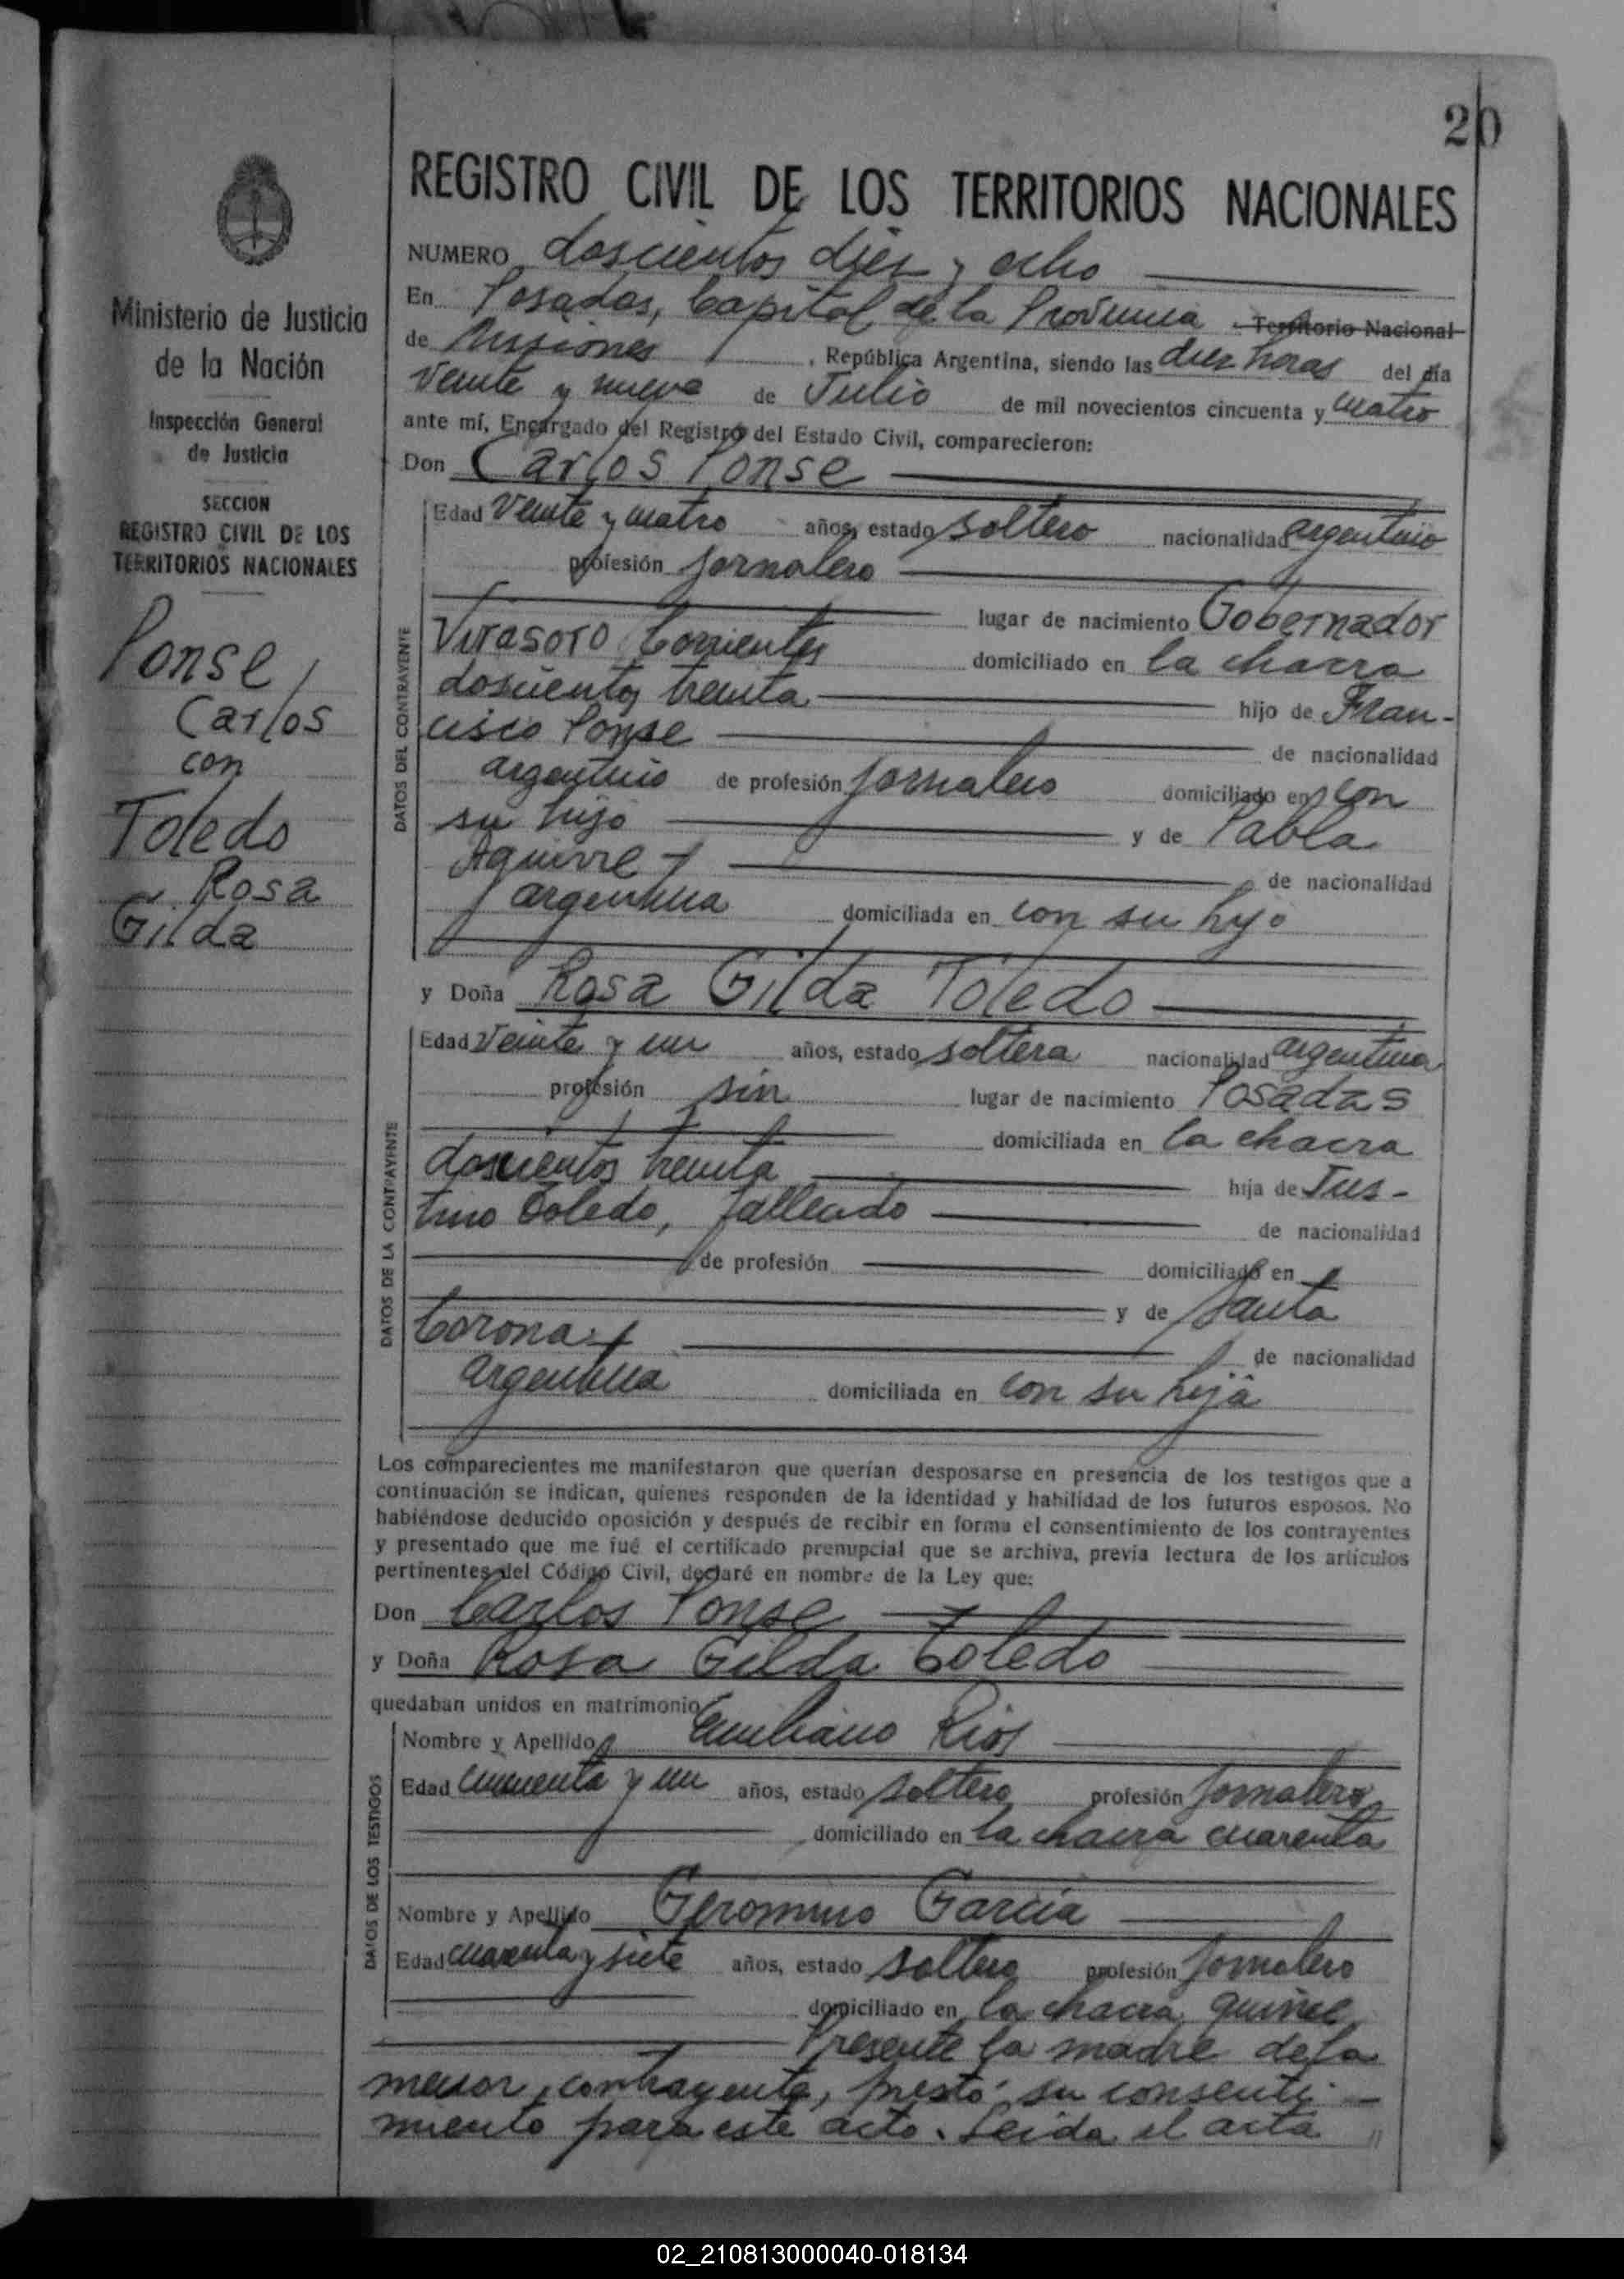 20
REGISTRO CIVIL DE LOS TERRITORIOS NACIONALES
Ministerio de Justicia
de la Nación
Inspección General
de Justicia
SECCION
REGISTRO CIVIL DE LOS
TERRITORIOS NACIONALES
Ponse,
Carlos
con
Toledo
Rosa
Gilda
NUMERO doscientos diez y ocho
En Posadas, Capital de la Provincia Territorio Nacional
de Misiones, República Argentina, siendo las diez horas del día
veinte y nueve de Julio de mil novecientos cincuenta y cuatro
ante mí, Encargado del Registro del Estado Civil, comparecieron:
Don Carlos Ponse
DATOS DEL CONTRAYENTE
Edad veinte y cuatro años, estado soltero nacionalidad argentino
profesión jornalero
lugar de nacimiento Gobernador
Virasoro Corrientes domiciliado en la chacra
doscientos treinta hijo de Fran-
cisco Ponse de nacionalidad
argentino de profesión jornalero domiciliado en con
su hijo y de Pabla
Aguirre de nacionalidad
argentina domiciliada en con su hijo
y Doña Rosa Gilda Toledo
DATOS DE LA CONTRAYENTE
Edad veinte y un años, estado soltera nacionalidad argentina
profesión sin lugar de nacimiento Posadas
domiciliada en la chacra
doscientos treinta hija de Jus-
tino Toledo, fallecido de nacionalidad
de profesión domiciliado en
y de Santa
Corona de nacionalidad
argentina domiciliada en con su hija
Los comparecientes me manifestaron que querían desposarse en presencia de los testigos que a
continuación se indican, quienes responden de la identidad y habilidad de los futuros esposos. No
habiéndose deducido oposición y después de recibir en forma el consentimiento de los contrayentes
y presentado que me fué el certificado prenupcial que se archiva, previa lectura de los artículos
pertinentes del Código Civil, declaré en nombre de la Ley que:
Don Carlos Ponse
y Doña Rosa Gilda Toledo
quedaban unidos en matrimonio
DATOS DE LOS TESTIGOS
Nombre y Apellido Emiliano Rios
Edad cincuenta y un años, estado soltero profesión jornalero
domiciliado en la chacra cuarenta
Nombre y Apellido Geronimo García
Edad cuarenta y siete años, estado soltero profesión jornalero
domiciliado en la chacra quince
Presente la madre de la
menor contrayente, prestó su consenti-
miento para este acto. Leida el acta
02_210813000040-018134